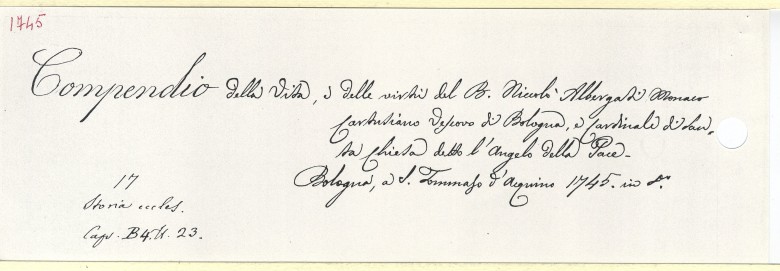 1745
Compendio della Vita, e delle virtù del B. Nicolò Albergati Monaco
Certusiano Vescovo di Bologna, e Cardinale di San-
ta Chiesa detto l'Angelo della Pace-
Bologna, a S. Tommaso d'Aquino 1745. in 8.º
17
Storia eccles.
Caps. B4. N. 23.